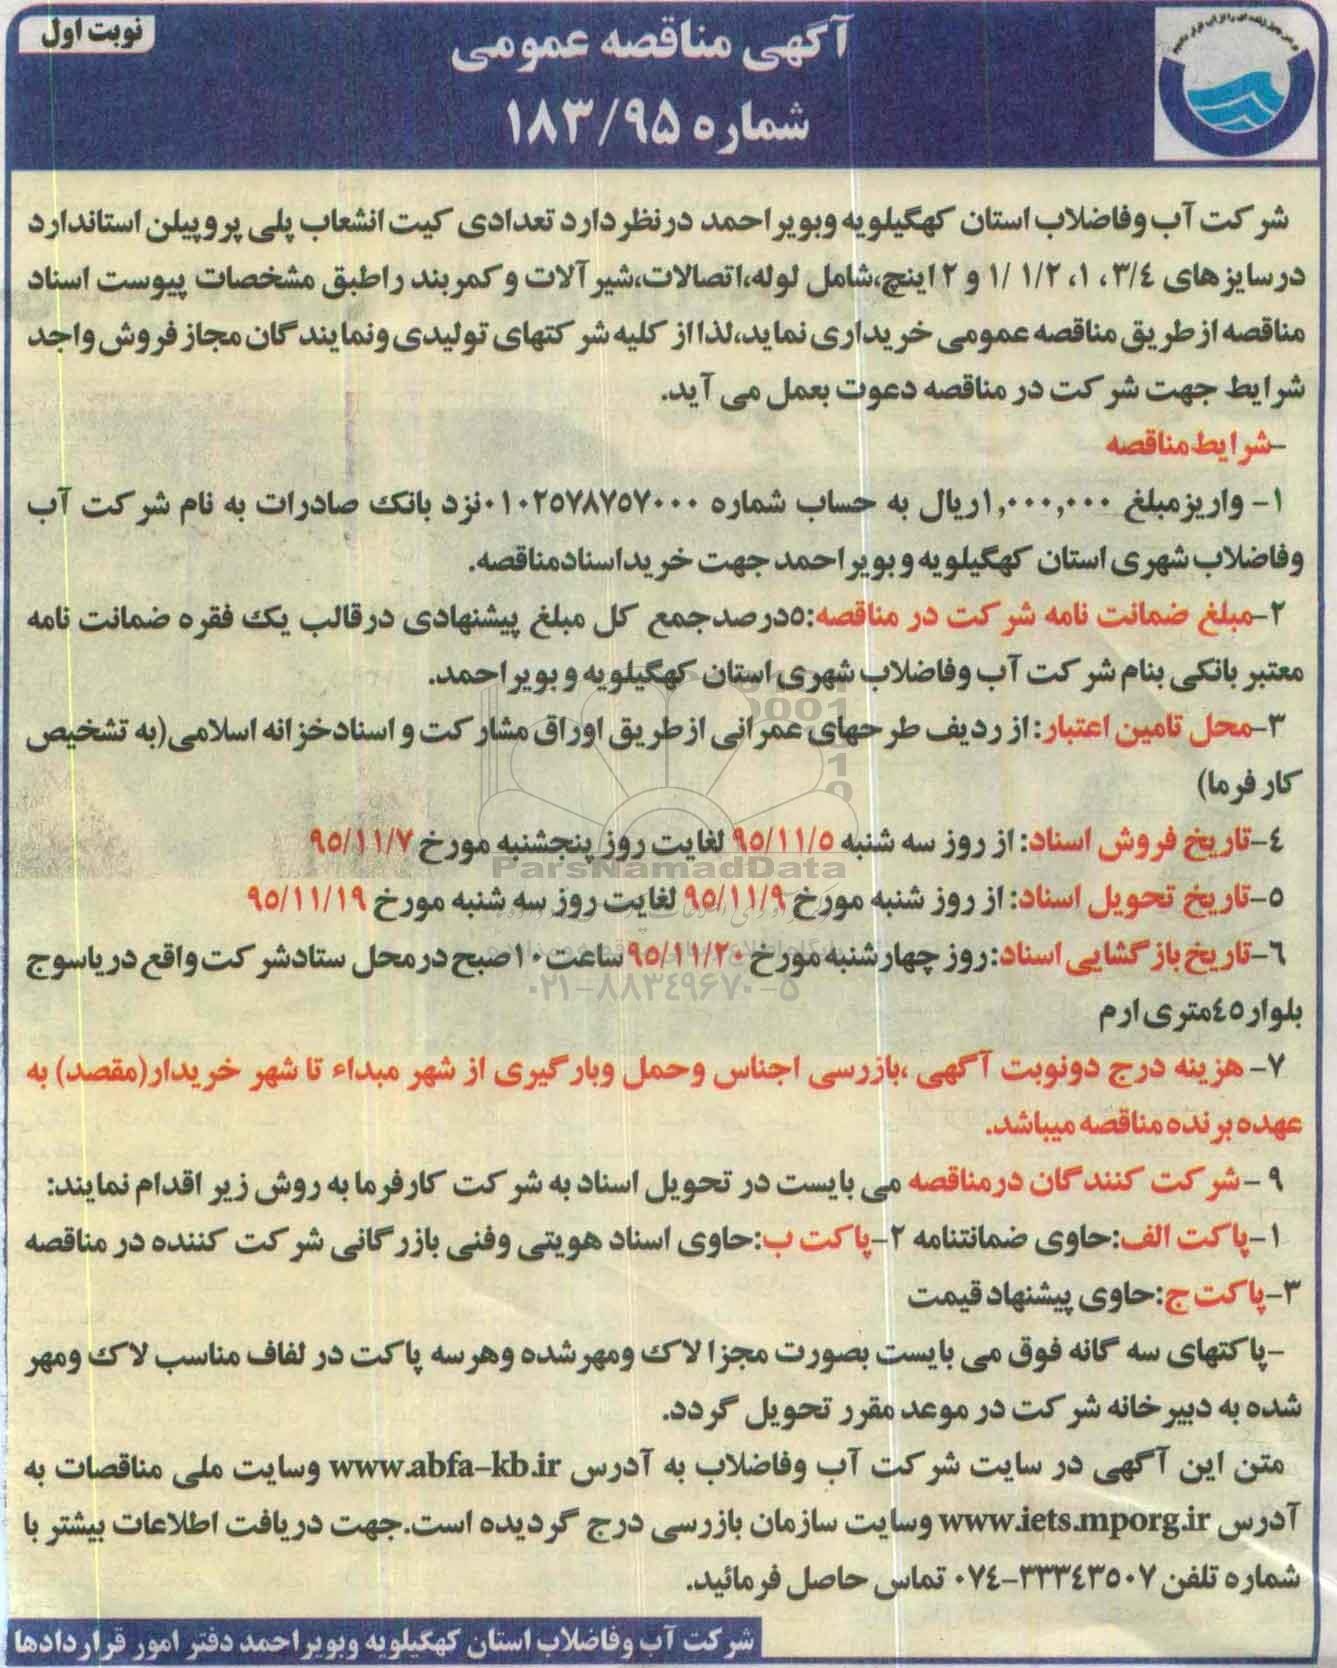 نوبت اول
آگهی مناقصه عمومی
شماره ۱۸۳/۹۵
شرکت آب وفاضلاب استان کهگیلویه وبویراحمد درنظردارد تعدادی کیت انشعاب پلی پروپیلن استاندارد
درسایزهای ۳/٤ ، ۱، ۱/۲ /۱ و ۲ اینچ،شامل لوله،اتصالات،شیرآلات و کمربند راطبق مشخصات پیوست اسناد
مناقصه ازطریق مناقصه عمومی خریداری نماید،لذا از کلیه شرکتهای تولیدی ونمایندگان مجاز فروش واجد
شرایط جهت شرکت در مناقصه دعوت بعمل می آید.
-شرایط مناقصه
۱- واریزمبلغ ۱,۰۰۰,۰۰۰ریال به حساب شماره ۰۱۰۲۵۷۸۷۵۷۰۰۰نزد بانک صادرات به نام شرکت آب
وفاضلاب شهری استان کهگیلویه و بویراحمد جهت خریداسنادمناقصه.
۲-مبلغ ضمانت نامه شرکت در مناقصه:۵درصدجمع کل مبلغ پیشنهادی درقالب یک فقره ضمانت نامه
معتبر بانکی بنام شرکت آب وفاضلاب شهری استان کهگیلویه و بویراحمد.
۳-محل تامین اعتبار: از ردیف طرحهای عمرانی ازطریق اوراق مشارکت و اسنادخزانه اسلامی(به تشخیص
کارفرما)
٤-تاریخ فروش اسناد: از روز سه شنبه ۹۵/۱۱/۵ لغایت روز پنجشنبه مورخ ۹۵/۱۱/۷
۵-تاریخ تحویل اسناد: از روز شنبه مورخ ۹۵/۱۱/۹ لغایت روز سه شنبه مورخ ۹۵/۱۱/۱۹
۶-تاریخ بازگشایی اسناد:روز چهارشنبه مورخ ۹۵/۱۱/۲۰ساعت۱۰صبح درمحل ستادشرکت واقع دریاسوج
بلوار٤۵متری ارم
۷- هزینه درج دونوبت آگهی ،بازرسی اجناس وحمل وبارگیری از شهر مبداء تا شهر خریدار(مقصد) به
عهده برنده مناقصه میباشد.
۹ -شرکت کنندگان درمناقصه می بایست در تحویل اسناد به شرکت کارفرما به روش زیر اقدام نمایند:
۱-پاکت الف:حاوی ضمانتنامه ۲-پاکت ب:حاوی اسناد هویتی وفنی بازرگانی شرکت کننده در مناقصه
۳-پاکت ج:حاوی پیشنهاد قیمت
-پاکتهای سه گانه فوق می بایست بصورت مجزا لاک ومهرشده وهرسه پاکت در لفاف مناسب لاک ومهر
شده به دبیرخانه شرکت در موعد مقرر تحویل گردد.
متن این آگهی در سایت شرکت آب وفاضلاب به آدرس www.abfa-kb.ir وسایت ملی مناقصات به
آدرس www.iets.mporg.ir وسایت سازمان بازرسی درج گردیده است.جهت دریافت اطلاعات بیشتر با
شماره تلفن ۳۳۳٤۳۵۰۷-۰۷٤ تماس حاصل فرمائید.
شرکت آب وفاضلاب استان کهگیلویه وبویراحمد دفتر امور قراردادها
ParsNamadData
۰۲۱-۸۸۳۴۹۶۷۰-۵